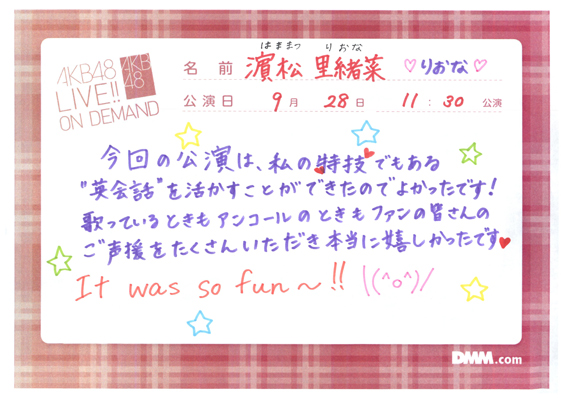 AKB48
LIVE!!
ON DEMAND
AKB
48
はままつ りおな
名 前 濵松 里緒菜 ♡りおな♡
公演日 9月 28日 11:30 公演
今回の公演は、私の特技でもある
"英会話"を活かすことができたのでよかったです!
歌っているときもアンコールのときもファンの皆さんの
ご声援をたくさんいただき本当に嬉しかったです♥
It was so fun〜!! \(^o^)/
DMM.com